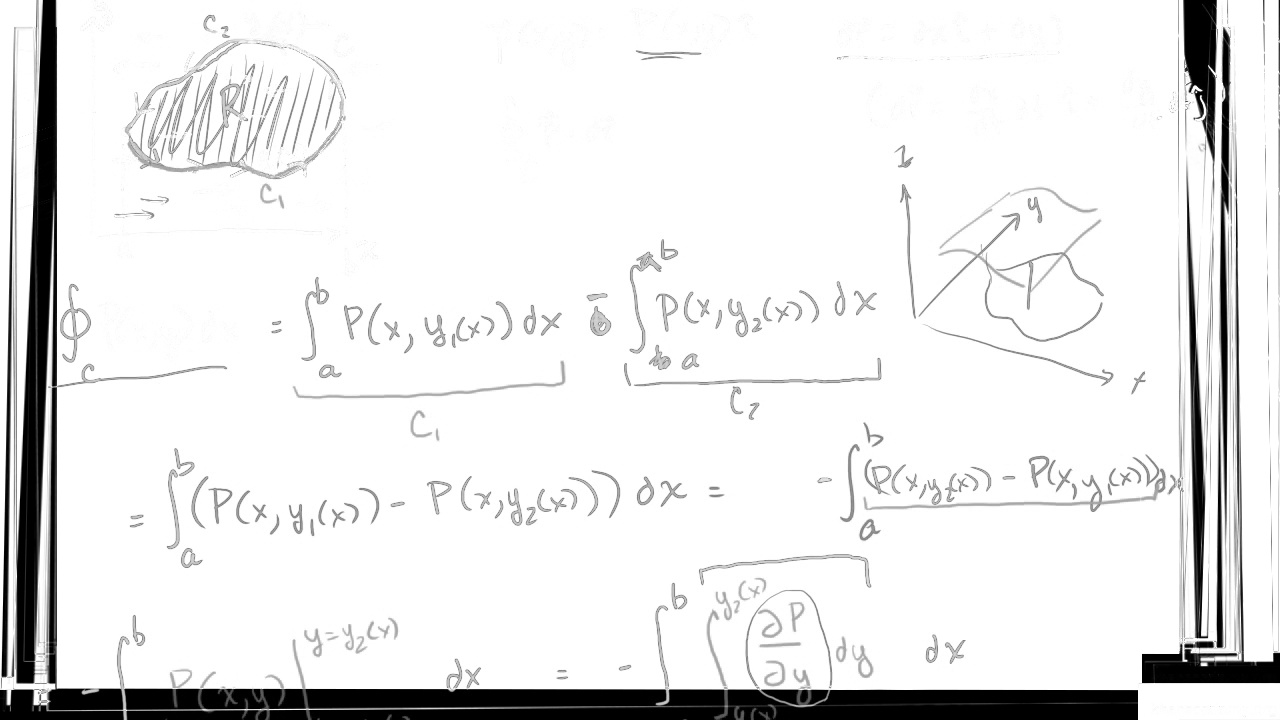 C₂
R
C₁
z
y
x
∮_C = ∫_a^b P(x, y₁(x)) dx - ∫_a^b P(x, y₂(x)) dx
C₁
C₂
= ∫_a^b (P(x, y₁(x)) - P(x, y₂(x))) dx = - ∫_a^b (P(x, y₂(x)) - P(x, y₁(x))) dx
- ∫^b P(x,y) |^{y=y₂(x)} dx = - ∫^b ∫^{y₂(x)} ∂P/∂y dy dx